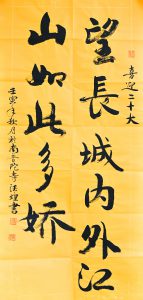 喜迎二十大
望長城内外江
山如此多娇
壬寅年秋月於南普陀寺法煋書